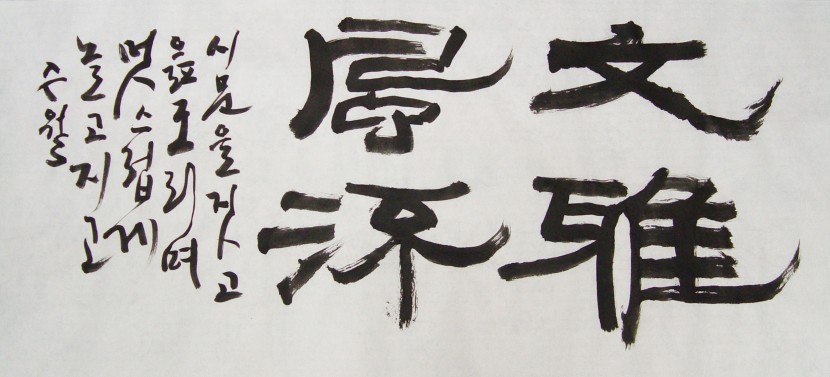 文雅
風流
시문을 짓고
읊조리며
멋스럽게
놀고지고